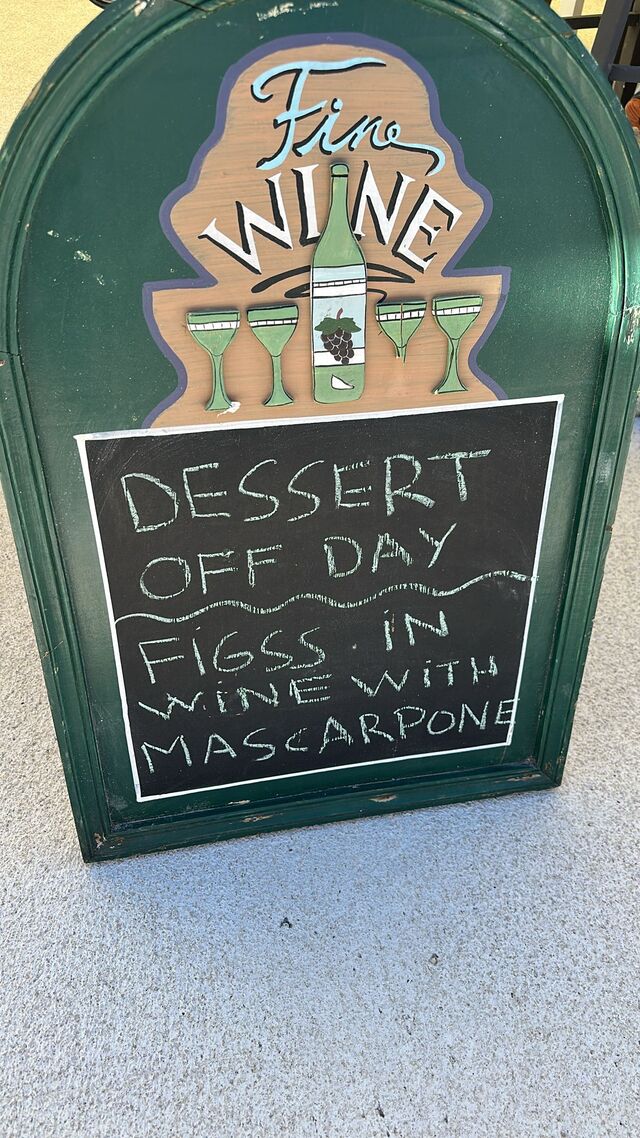 Fine
WINE
DESSERT
OFF DAY
FIGSS IN
WINE WITH
MASCARPONE